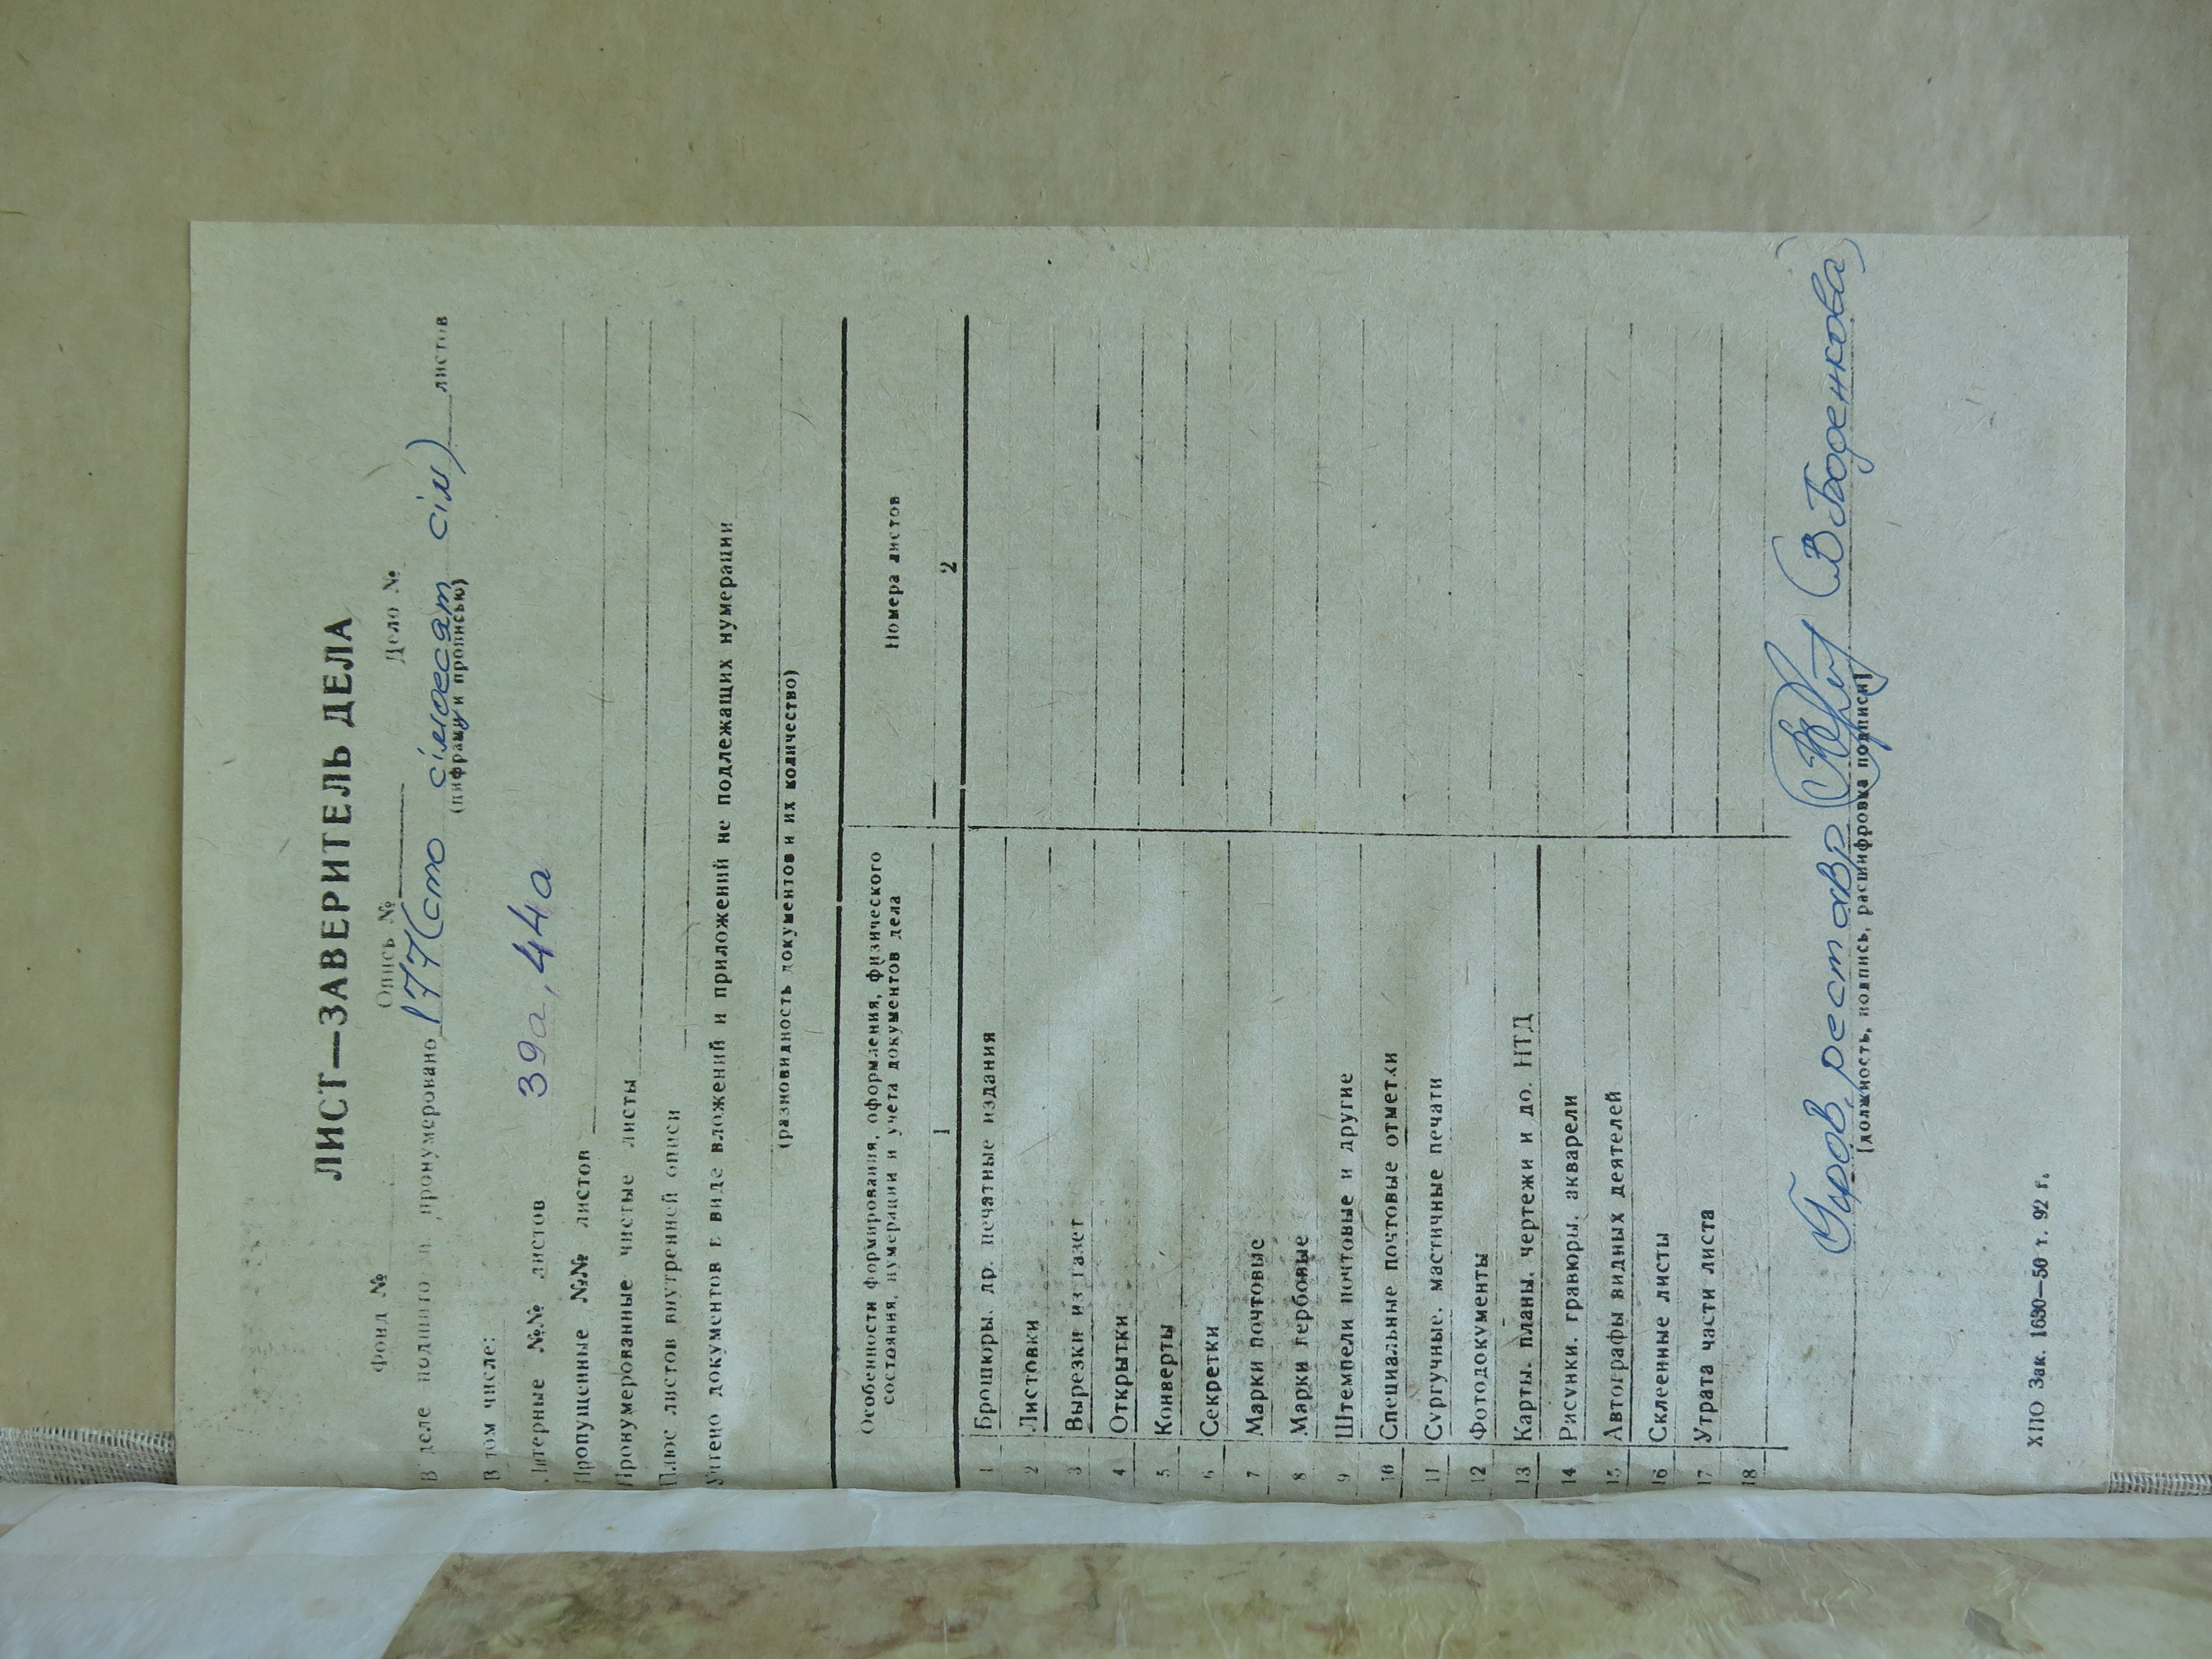 ЛИСТ—ЗАВЕРИТЕЛЬ ДЕЛА
Фонд № Опись № Дело №
В деле подшито и пронумеровано 177 (сто сімдесят сім) листов
(цифрами и прописью)
В том числе:
Литерные №№ листов 39а, 44а
Пропущенные №№ листов
Пронумерованные чистые листы
Плюс листов внутренней описи
Учтено документов в виде вложений и приложений не подлежащих нумерации
(разновидность документов и их количество)
Особенности формирования, оформления, физического
состояния, нумерации и учета документов дела
Номера листов
1 2
1 Брошюры, др. печатные издания
2 Листовки
3 Вырезки из газет
4 Открытки
5 Конверты
6 Секретки
7 Марки почтовые
8 Марки гербовые
9 Штемпели почтовые и другие
10 Специальные почтовые отметки
11 Сургучные, мастичные печати
12 Фотодокументы
13 Карты, планы, чертежи и др. НТД
14 Рисунки, гравюры, акварели
15 Автографы видных деятелей
16 Склеенные листы
17 Утрата части листа
18
реставр
[должность, подпись, расшифровка подписи]
ХПО Зак. 1630—50 т. 92 г.